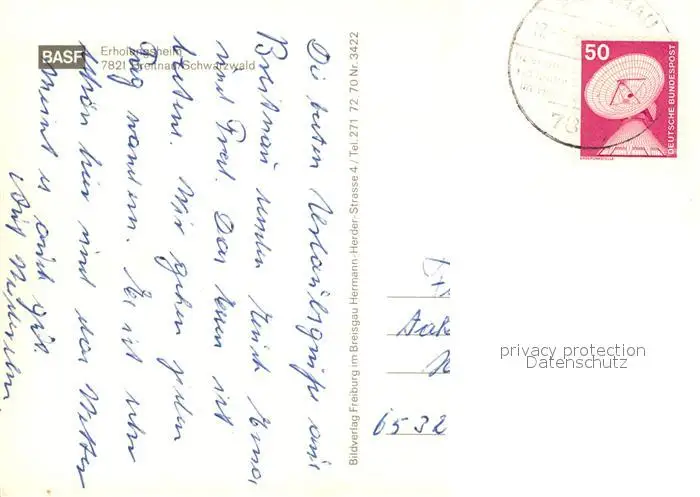 BASF
Erholungsheim
7821 Breitnau/Schwarzwald
Die besten Urlaubsgrüße aus
Breitnau senden Euch Erna
und Fred. Das Essen ist
bestens. Wir gehen jeden
Tag wandern. Es ist sehr
schön hier und das Wetter
meint es auch gut.
Auf Wiedersehn.
Bildverlag Freiburg im Breisgau Hermann-Herder-Strasse 4 / Tel. 271 72. 70 Nr. 3422
50
DEUTSCHE BUNDESPOST
ERDEFUNKSTELLE
78
6532
privacy protection
Datenschutz